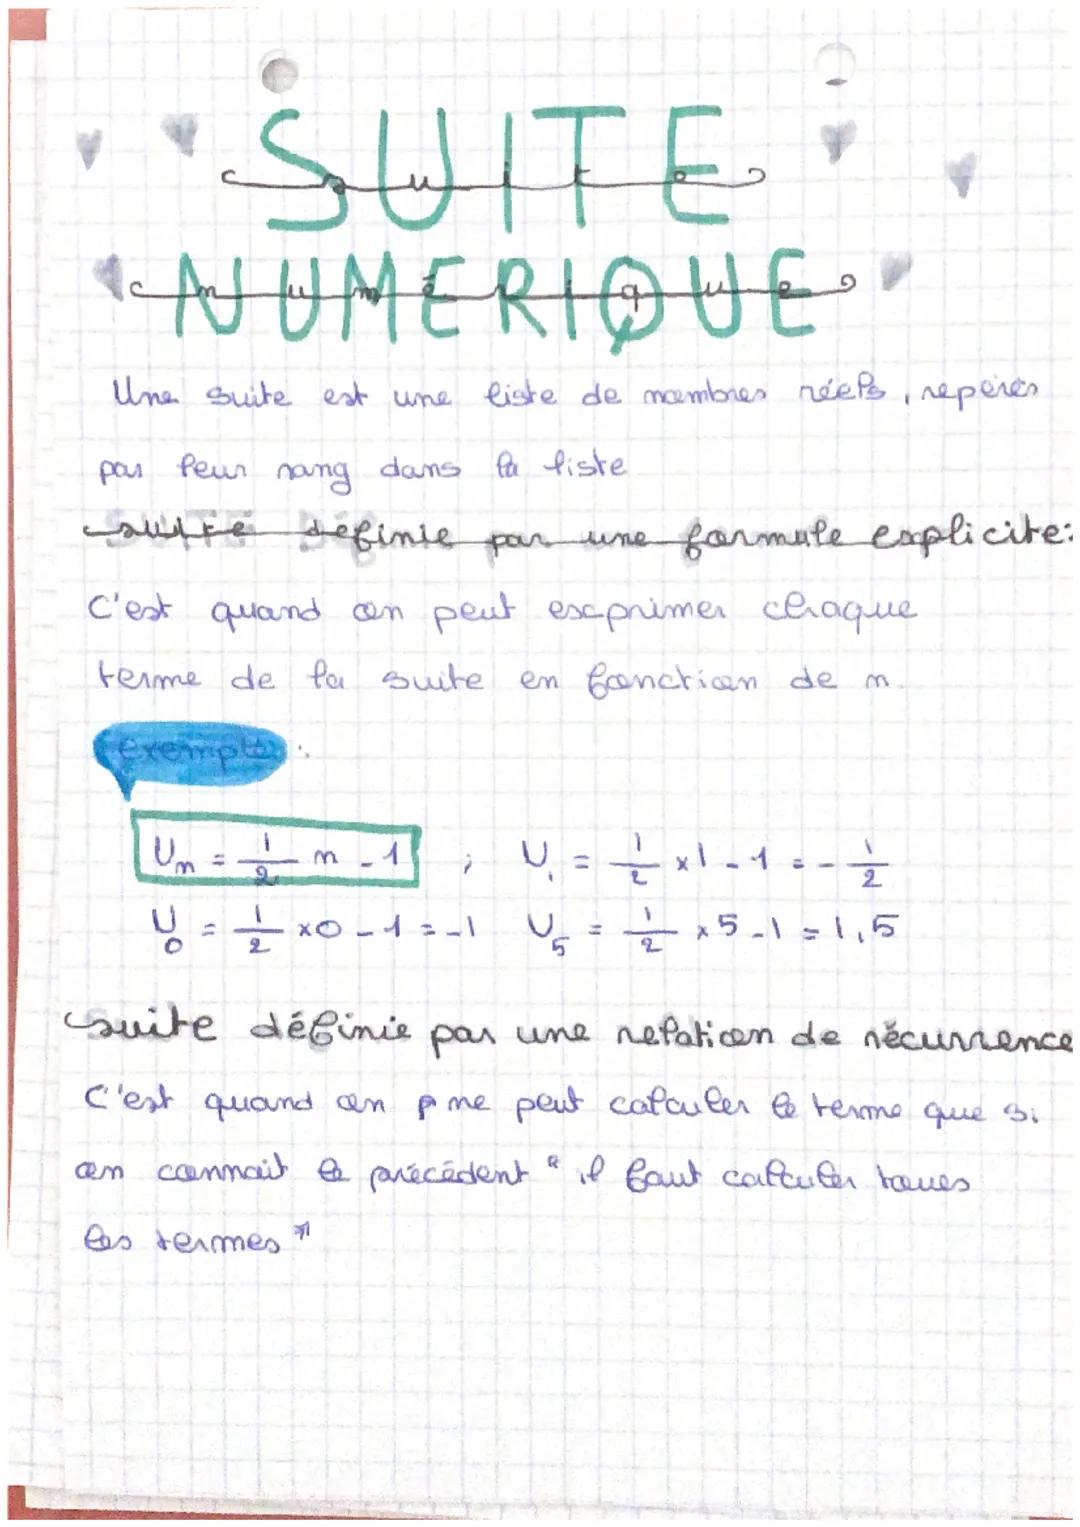 SUITE
NUMERIQUE
Une suite est une liste de nombres réels, repérés
par leur rang dans la liste
suite définie par une formule explicite:
C'est quand on peut exprimer chaque
terme de la suite en fonction de n.
exemple :
Un = 1/2 n - 1 ; U1 = 1/2 x 1 - 1 = - 1/2
U0 = 1/2 x 0 - 1 = -1 U5 = 1/2 x 5 - 1 = 1,5
suite définie par une relation de récurrence
C'est quand on ne peut calculer le terme que si
on connait le précédent " il faut calculer toues
les termes "